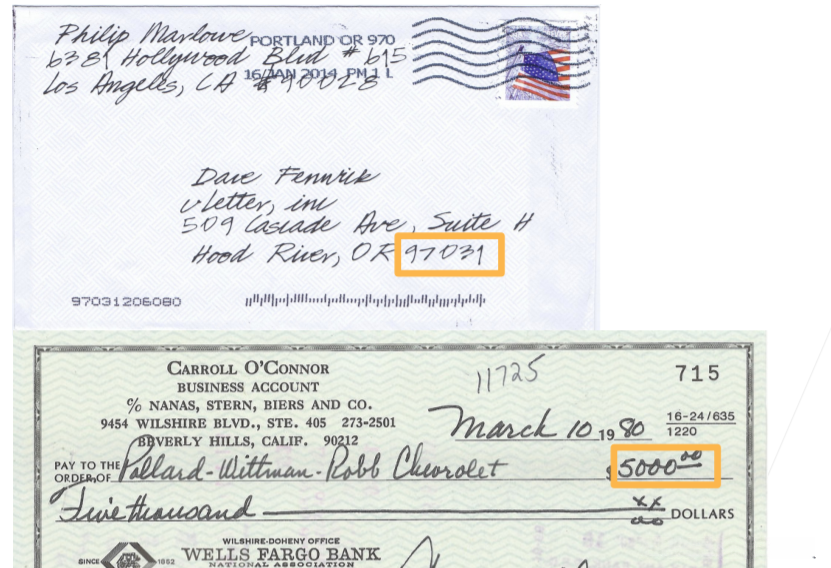 Philip Marlowe PORTLAND OR 970
6381 Hollywood Blvd # 615
16 JAN 2014 PM 1 L
Los Angeles, CA #90028
Dave Fennrick
vLetter, inc
509 Cascade Ave, Suite H
Hood River, OR 97031
97031206080
CARROLL O'CONNOR
BUSINESS ACCOUNT
% NANAS, STERN, BIERS AND CO.
9454 WILSHIRE BLVD., STE. 405 273-2501
BEVERLY HILLS, CALIF. 90212
11725
715
March 10 1980
16-24/635
1220
PAY TO THE ORDER OF Pollard-Wittman-Robb Chevrolet $5000.00
Five thousand xx/00 DOLLARS
WILSHIRE-DOHENY OFFICE
SINCE 1852 WELLS FARGO BANK
NATIONAL ASSOCIATION